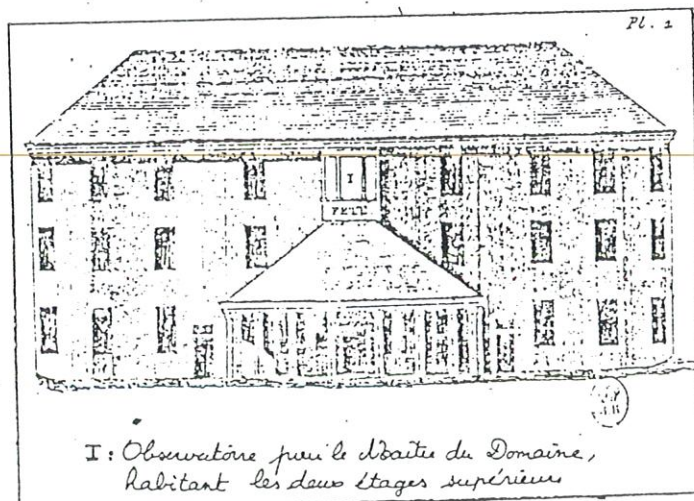 Pl. 1
I
I: Observatoire pour le Maître du Domaine,
habitant les deux étages supérieurs